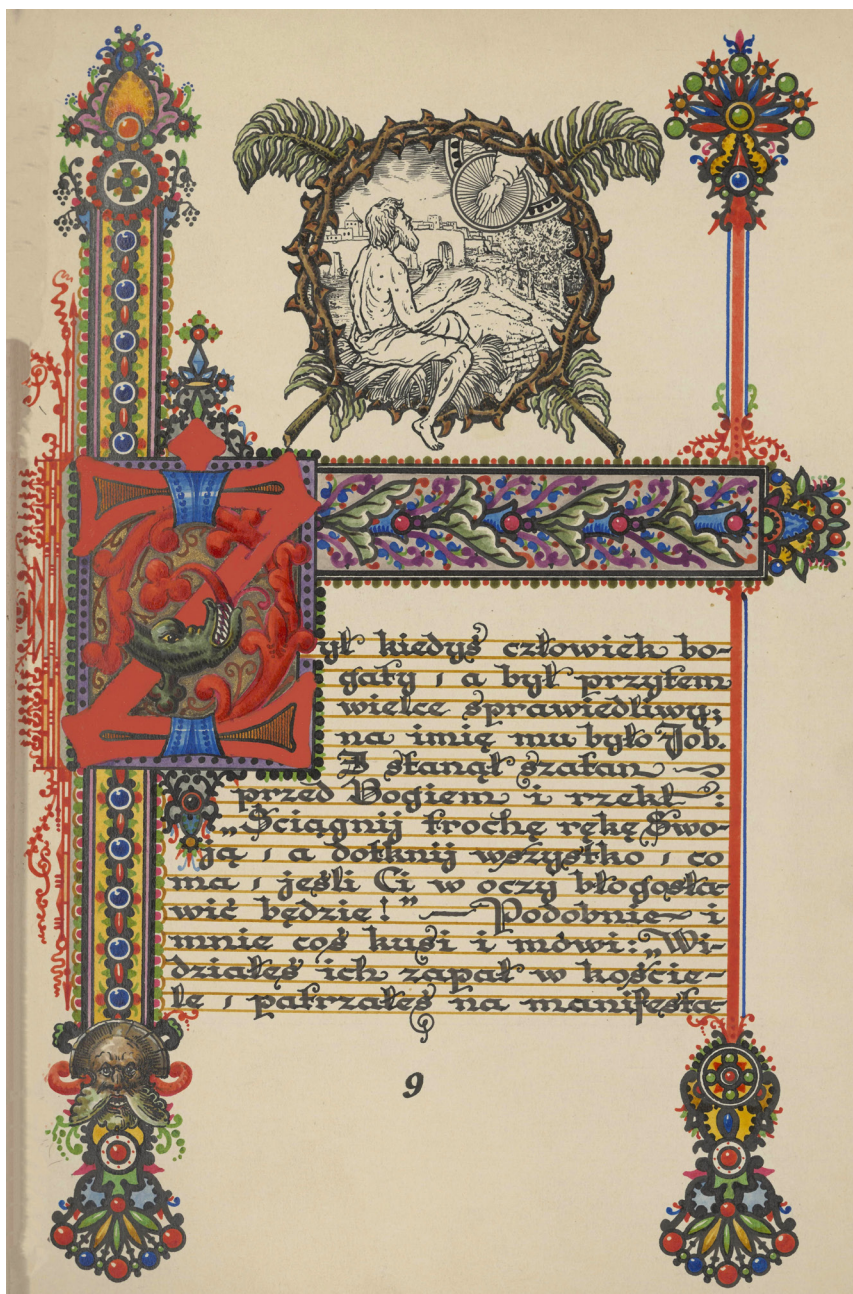 Żył kiedyś człowiek bo-
gaty, a był przytem
wielce sprawiedliwy;
na imię mu było Job.
I stanął szatan —
przed Bogiem i rzekł:
„Ściągnij trochę rękę Swo-
ją, a dotknij wszystko, co
ma, jeśli Ci w oczy błogosła-
wić będzie!” — Podobnie i
mnie coś kusi i mówi: „Wi-
działeś ich zapał w koście-
le, patrzałeś na manifesta-
9